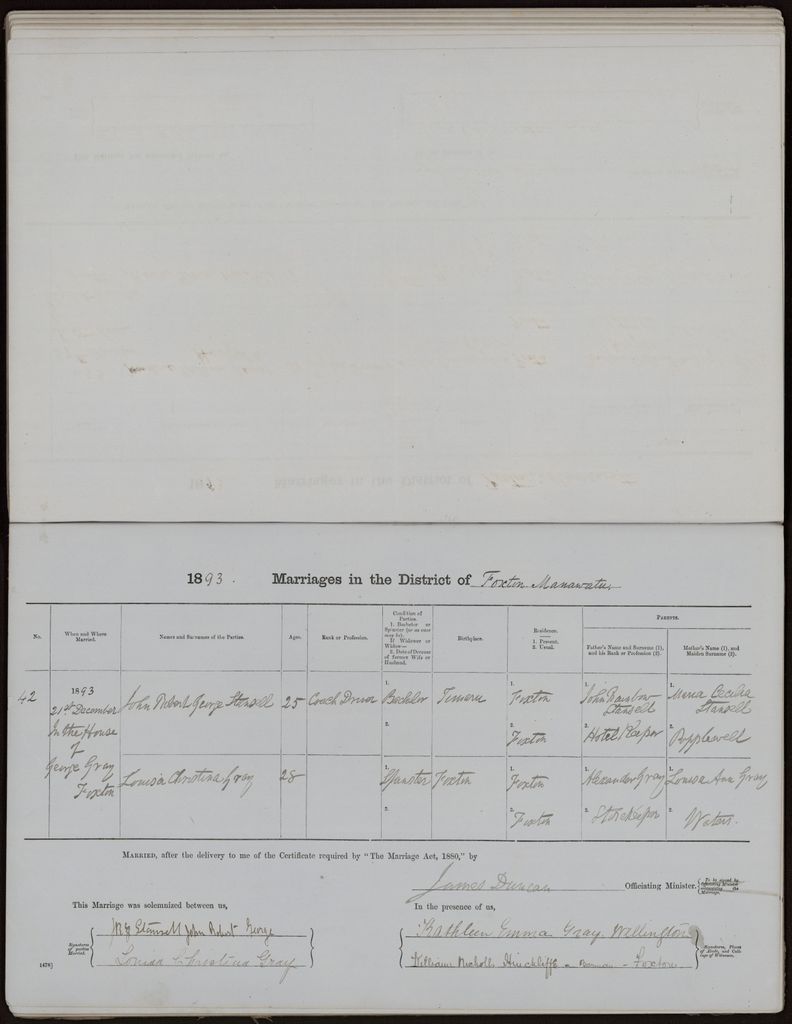 1893. Marriages in the District of Foxton Manawatu
No.
When and Where Married.
Names and Surnames of the Parties.
Ages.
Rank or Profession.
Condition of Parties.
1. Bachelor or Spinster (or as case may be).
If Widower or Widow—
2. Date of Decease of former Wife or Husband.
Birthplace.
Residence.
1. Present.
2. Usual.
PARENTS.
Father's Name and Surname (1), and his Rank or Profession (2).
Mother's Name (1), and Maiden Surname (2).
42
1893
21st December
In the House
of
George Gray
Foxton
John Robert George Stansell
25
Coach Driver
1. Bachelor
2.
Timaru
1. Foxton
2. Foxton
1. John Rainbow Stansell
2. Hotel Keeper
1. Cecilia Stansell
2. Popplewell
Louisa Christina Gray
28
1. Spinster
2.
Foxton
1. Foxton
2. Foxton
1. Alexander Gray
2. Storekeeper
1. Louisa Ann Gray
2. Waters.
MARRIED, after the delivery to me of the Certificate required by "The Marriage Act, 1880," by
James Duncan Officiating Minister. {To be signed by Officiating Minister solemnizing the Marriage.
This Marriage was solemnized between us,
Signatures of parties Married.
Stansell John Robert George
Louisa Christina Gray
In the presence of us,
Kathleen Emma Gray. Wellington
William Nicholl Hinchliffe - Barman - Foxton
Signatures, Places of Abode, and Callings of Witnesses.